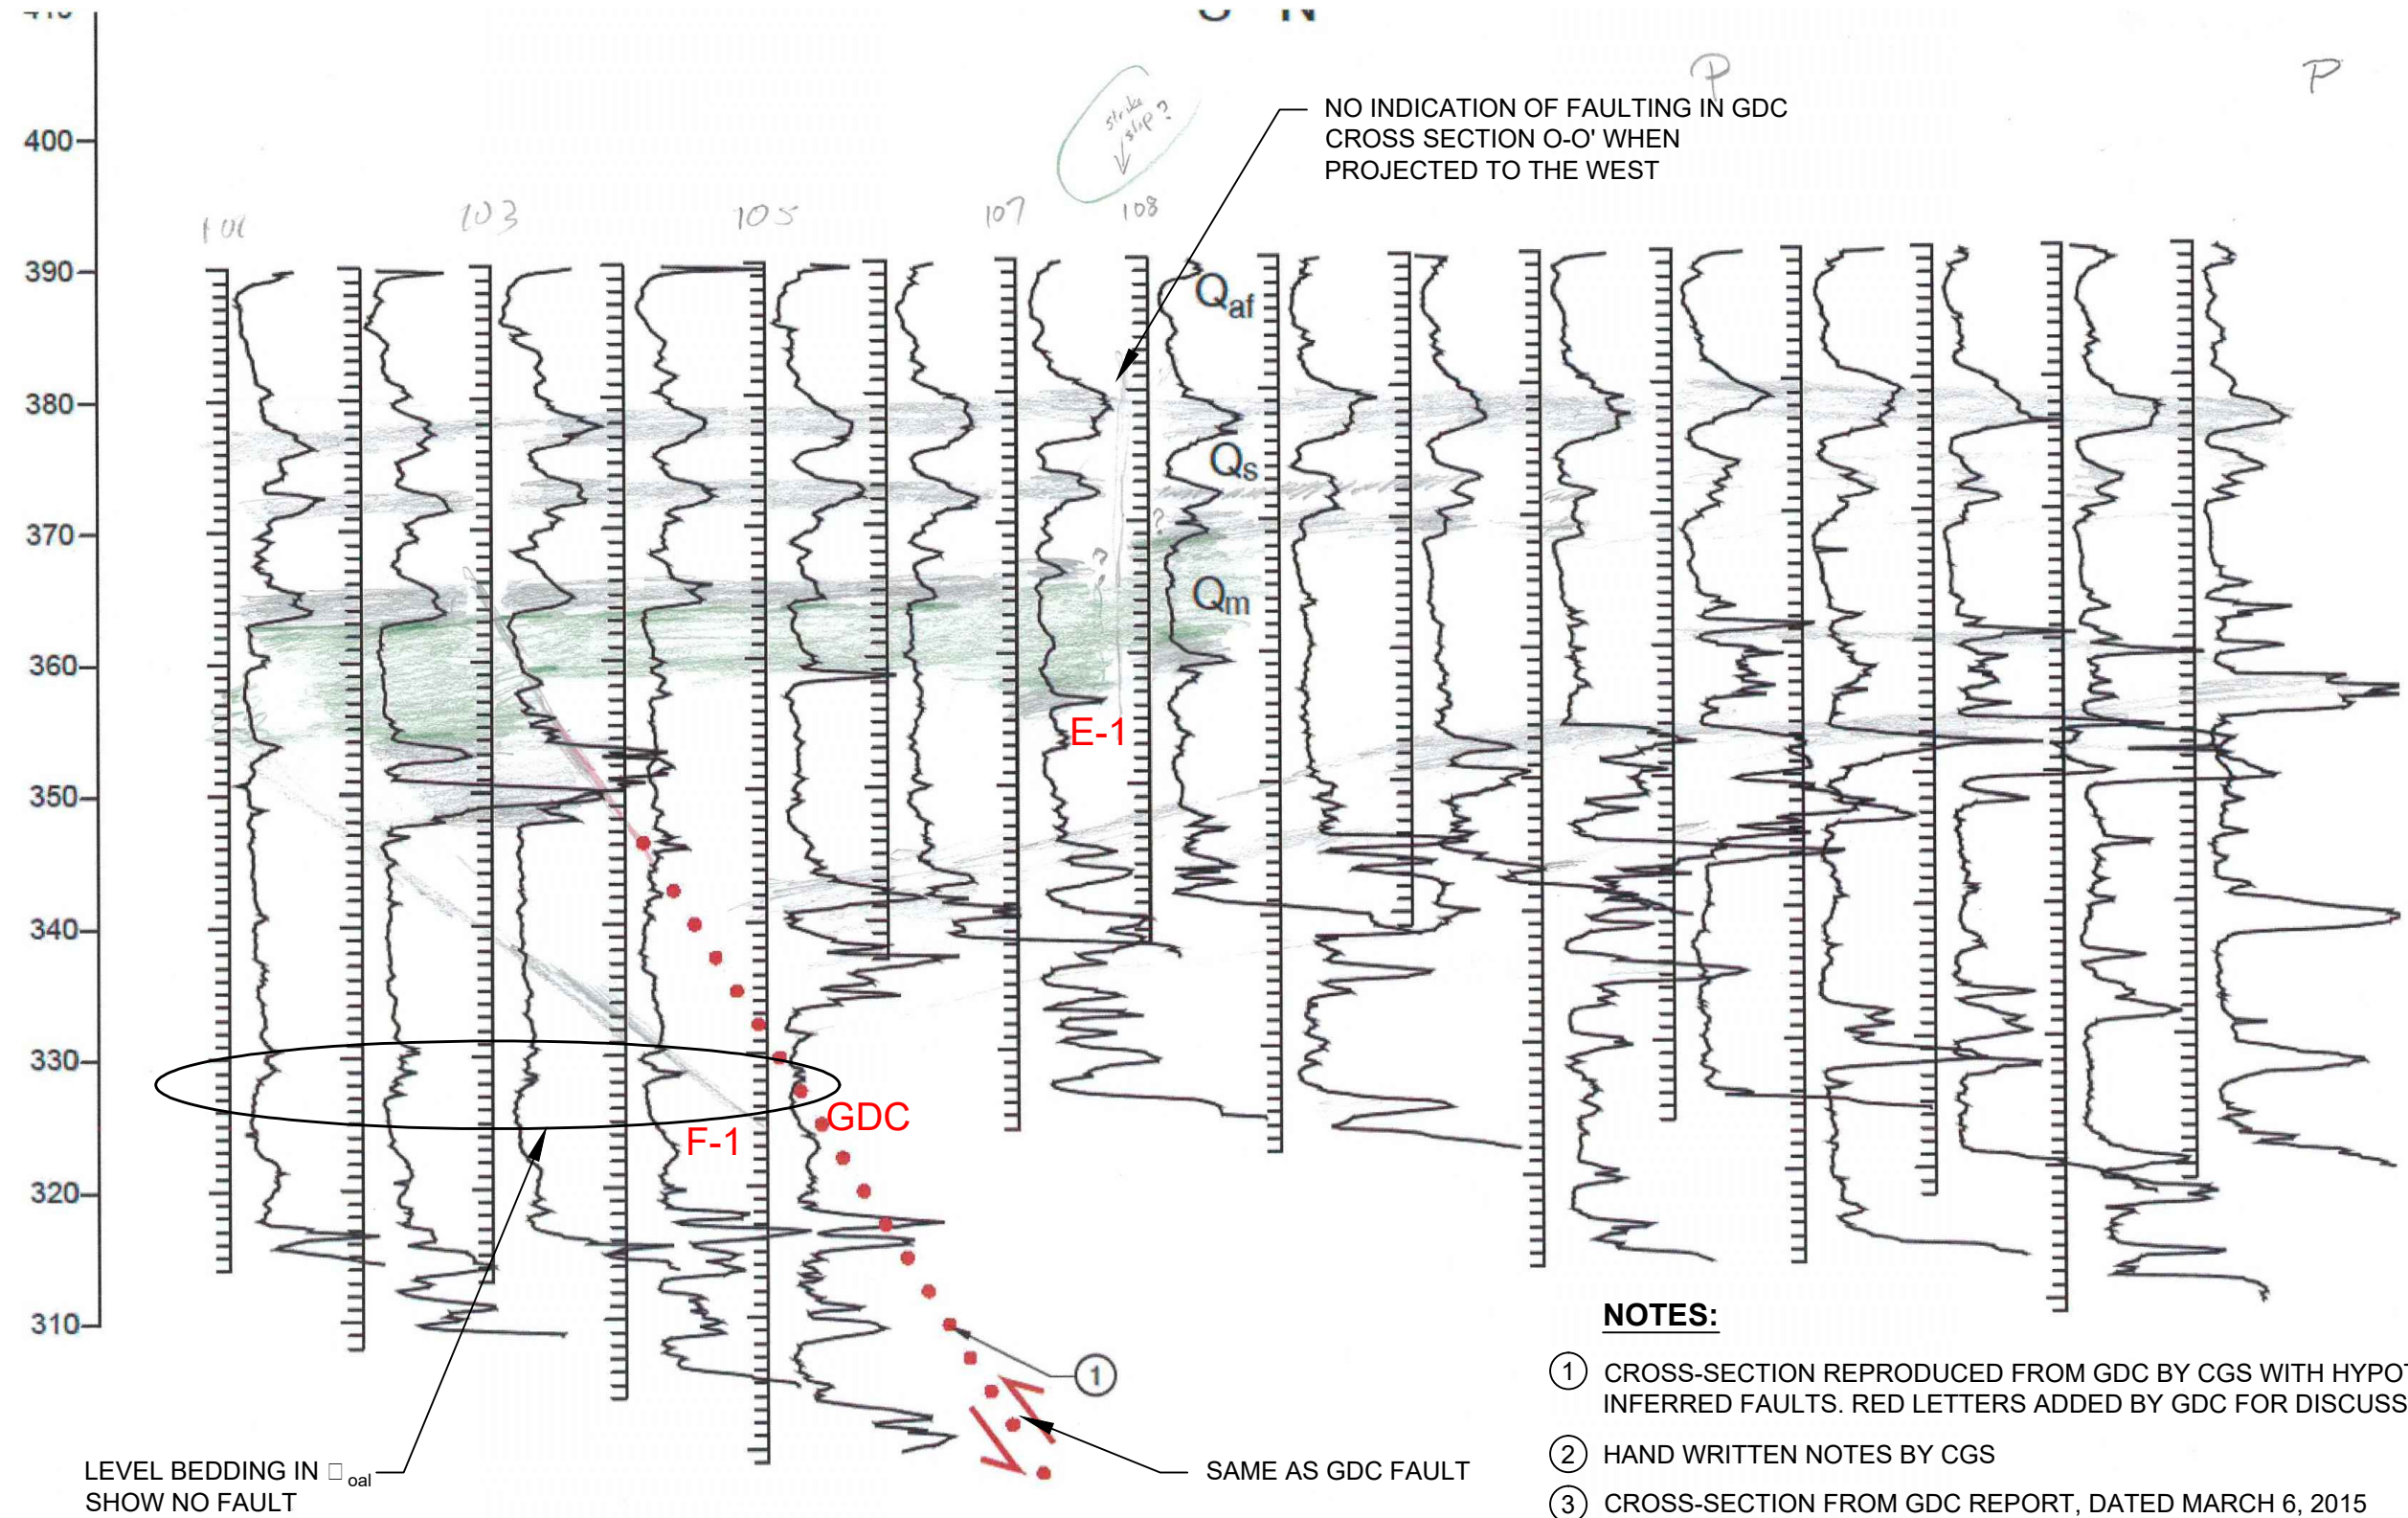 P
P
strike
slip?
NO INDICATION OF FAULTING IN GDC
CROSS SECTION O-O' WHEN
PROJECTED TO THE WEST
400
103
105
107
108
390
Qaf
380
Qs
370
?
?
Qm
360
E-1
350
340
330
GDC
F-1
320
310
1
LEVEL BEDDING IN □oal
SHOW NO FAULT
SAME AS GDC FAULT
NOTES:
1 CROSS-SECTION REPRODUCED FROM GDC BY CGS WITH HYPOT
INFERRED FAULTS. RED LETTERS ADDED BY GDC FOR DISCUSS
2 HAND WRITTEN NOTES BY CGS
3 CROSS-SECTION FROM GDC REPORT, DATED MARCH 6, 2015